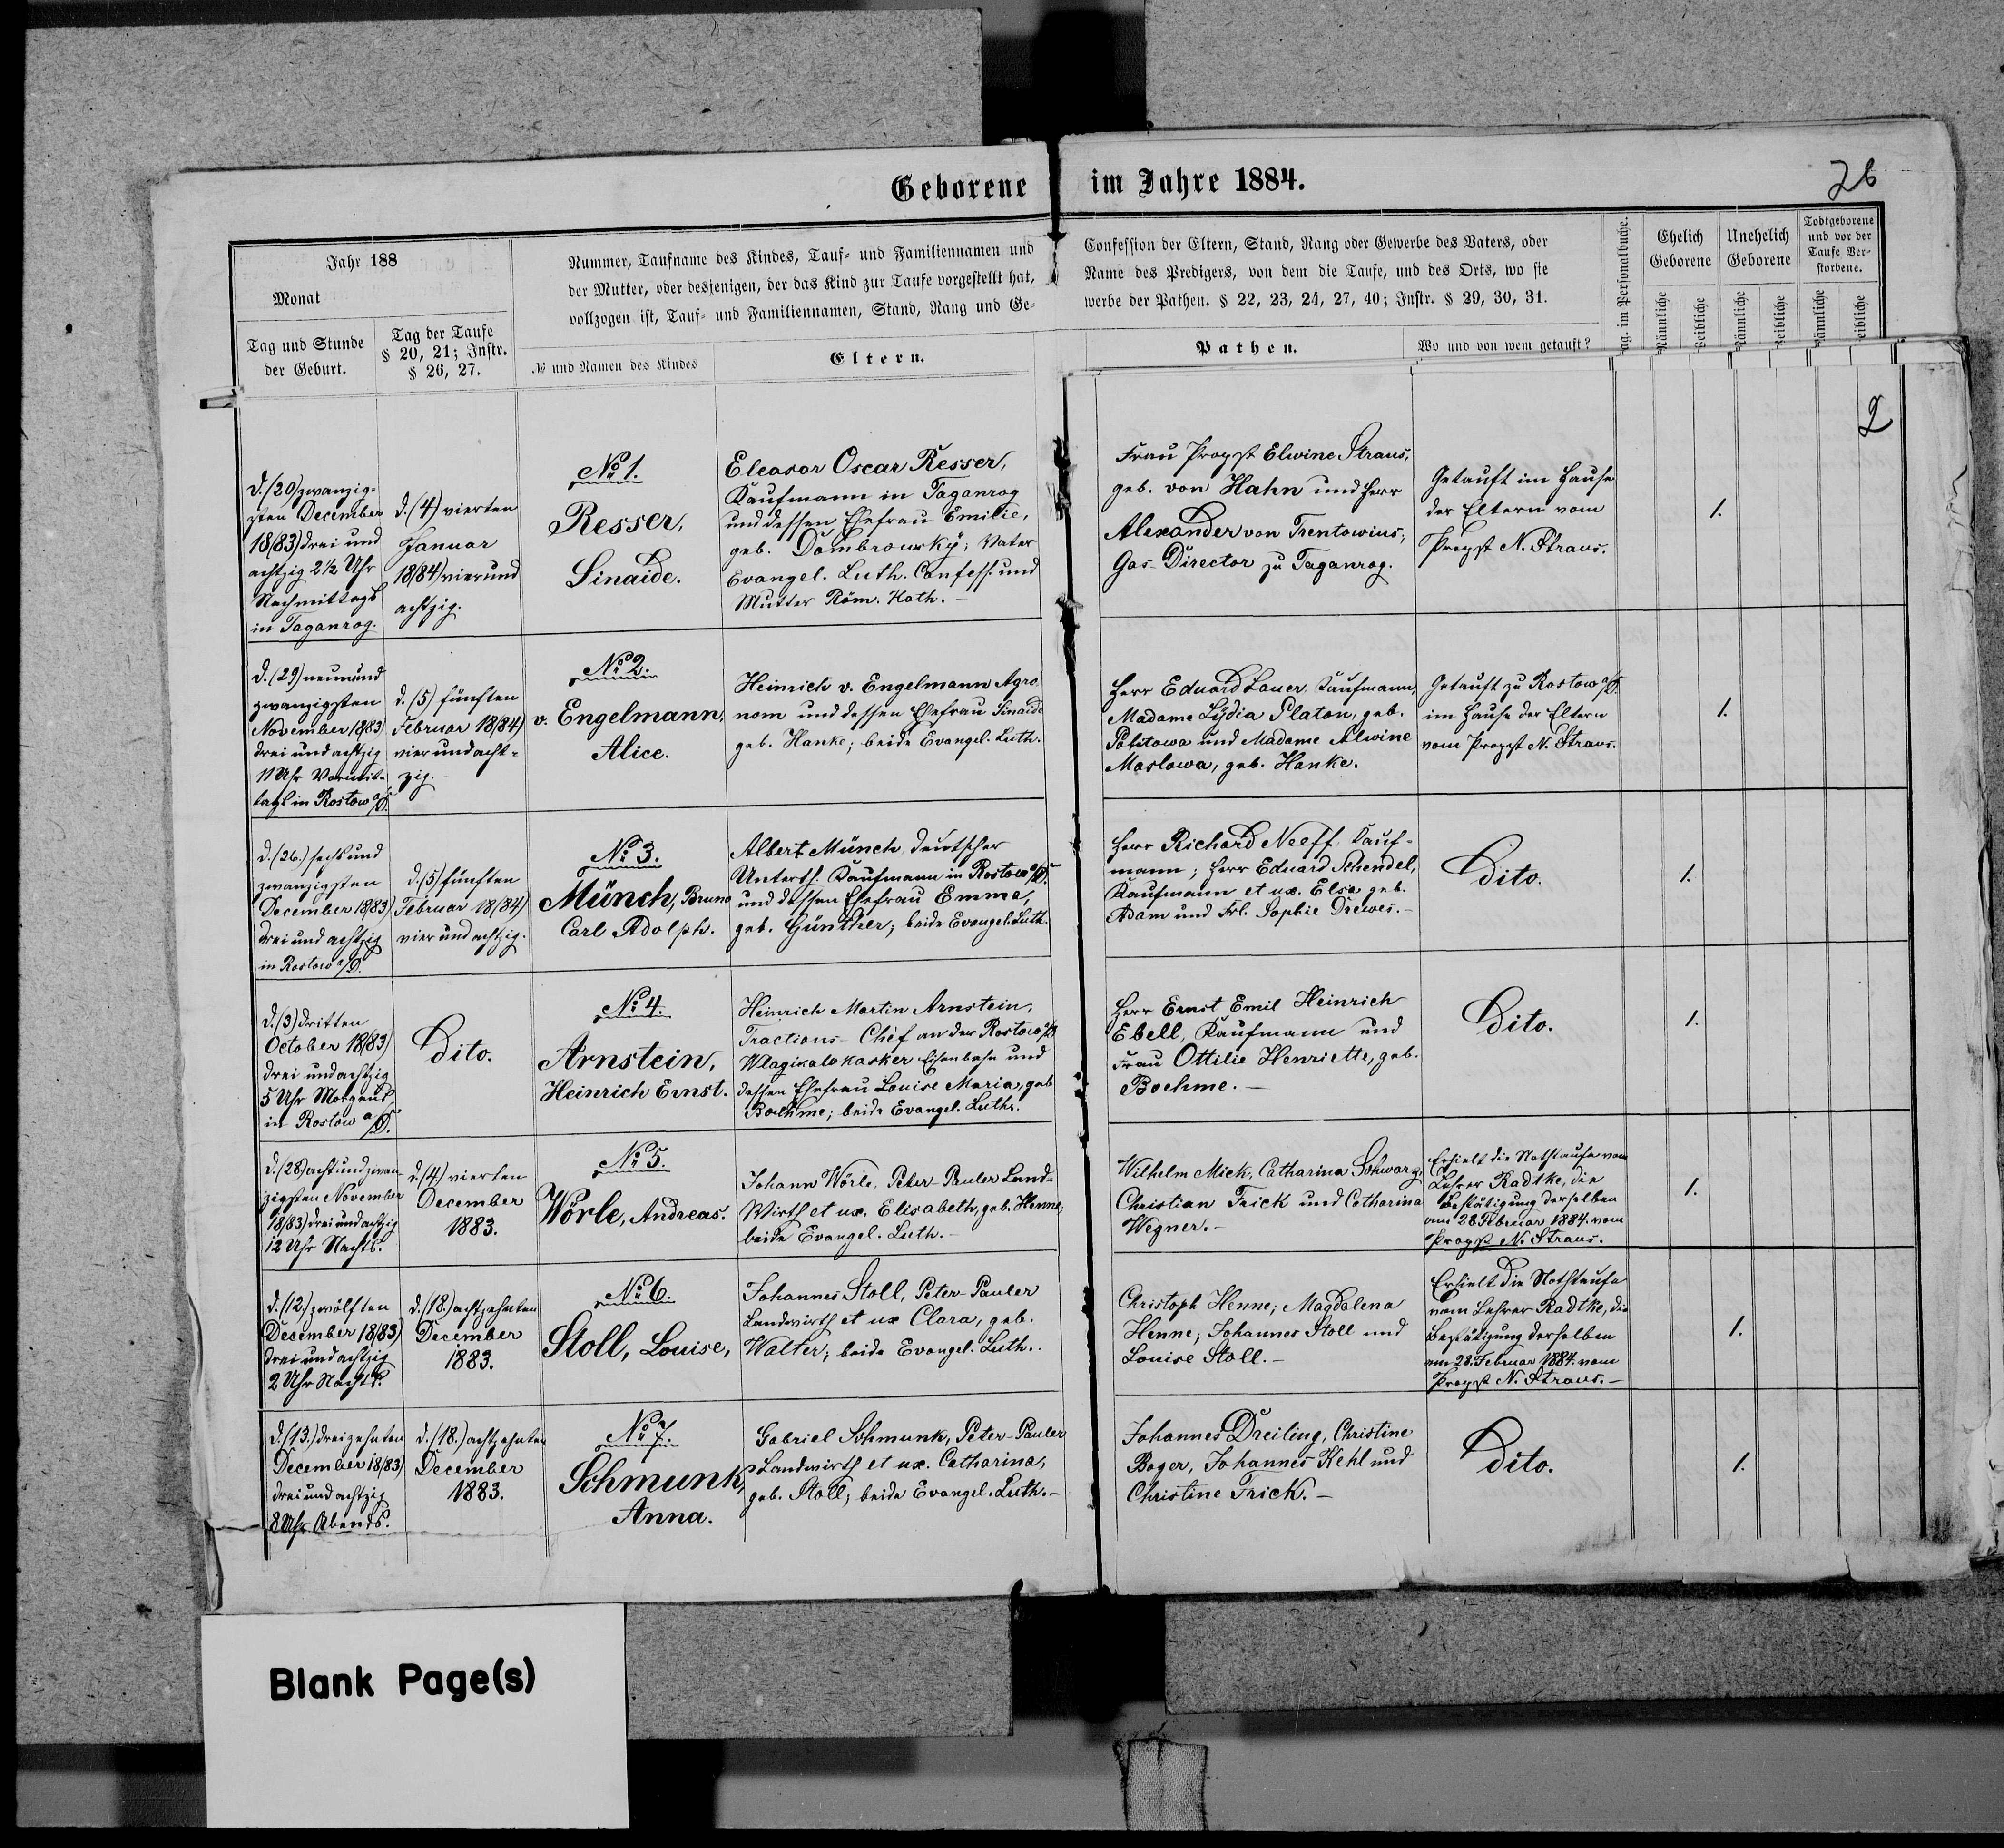 Geborene im Jahre 1884.
26
Jahr 188
Monat
Tag und Stunde
der Geburt.
Tag der Taufe
§ 20, 21; Instr.
§ 26, 27.
Nummer, Taufname des Kindes, Tauf- und Familiennamen und
der Mutter, oder desjenigen, der das Kind zur Taufe vorgestellt hat,
vollzogen ist, Tauf- und Familiennamen, Stand, Rang und Ge-
№ und Namen des Kindes
Eltern.
Confession der Eltern, Stand, Rang oder Gewerbe des Vaters, oder
Name des Predigers, von dem die Taufe, und des Orts, wo sie
werbe der Pathen. § 22, 23, 24, 27, 40; Instr. § 29, 30, 31.
Pathen.
Wo und von wem getauft?
Pag. im Personalbuche.
Ehelich
Geborene
Unehelich
Geborene
Todtgeborene
und vor der
Taufe Ver-
storbene.
Männliche
Weibliche
Männliche
Weibliche
Männliche
Weibliche
2
d. (20) zwanzig-
sten December
18(83) drei und
achtzig 2½ Uhr
Nachmittags
in Taganrog.
d. (4) vierten
Januar
18(84) vier und
achtzig.
№ 1.
Resser,
Sinaide.
Eleasar Oscar Resser,
Kaufmann in Taganrog
und dessen Ehefrau Emilie,
geb. Dombrowsky; Vater
Evangel. Luth. Confess. und
Mutter Röm. Kath. –
Frau Propst Elwine Straus,
geb. von Hahn und Herr
Alexander von Trentowius,
Gas-Director zu Taganrog.
Getauft im Hause
der Eltern vom
Propst N. Straus.
1.
d. (29) neun und
zwanzigsten
November 18(83)
drei und achtzig
11 Uhr Vormit-
tags in Rostow a/D.
d. (5) fünften
Februar 18(84)
vier und acht-
zig.
№ 2.
v. Engelmann,
Alice.
Heinrich v. Engelmann Agro
nom und dessen Ehefrau Sinaide
geb. Hanke; beide Evangel. Luth.
Herr Eduard Lauer, Kaufmann,
Madame Lydia Platon, geb.
und Madame Alwine
Maslowa, geb. Hanke.
Getauft zu Rostow a/D.
im Hause der Eltern
vom Propst N. Straus.
1.
d. (26.) sechs und
zwanzigsten
December 18(83)
drei und achtzig
in Rostow a/D.
d. (5) fünften
Februar 18(84)
vier und achtzig.
№ 3.
Münch, Bruno
Carl Adolph.
Albert Münch, deutscher
Unterth. Kaufmann in Rostow a/D.
und dessen Ehefrau Emma,
geb. Günther; beide Evangel. Luth.
Herr Richard Neeff, Kauf-
mann; Herr Eduard Schendel,
Kaufmann et ux. Elsa geb.
Adam und Frl. Sophie Drewes. –
Dito.
1.
d. (3) dritten
October 18(83)
drei und achtzig
5 Uhr Morgens
in Rostow a/D.
Dito.
№ 4.
Arnstein,
Heinrich Ernst.
Heinrich Martin Arnstein,
Tractions-Chef an der Rostow a/D
Wlagikawkasker Eisenbahn und
dessen Ehefrau Louise Maria, geb
Boehme; beide Evangel. Luth.
Herr Ernst Emil Heinrich
Ebell, Kaufmann und
Frau Ottilie Henriette, geb.
Boehme. –
Dito.
1.
d. (28) acht und zwan-
zigsten November
18(83) drei und achtzig
12 Uhr Nachts.
d. (4.) vierten
December
1883.
№ 5.
Wörle, Andreas.
Johann Wörle, Peter-Pauler Land-
Wirth et ux. Elisabeth, geb. Henne,
beide Evangel. Luth. –
Wilhelm Mick, Catharina Schwarz,
Christian Frick und Catharina
Wegner. –
Erhielt die Nothtaufe vom
Lehrer Radtke, die
Bestätigung derselben
am 28 Februar 1884. vom
Propst N. Straus.
1.
d. (12.) zwölften
December 18(83)
drei und achtzig
2 Uhr Nachts.
d. (18.) achtzehnten
December
1883.
№ 6.
Stoll, Louise,
Johannes Stoll, Peter-Pauler
Landwirth et ux Clara, geb.
Walter; beide Evangel. Luth.
Christoph Henne; Magdalena
Henne; Johannes Stoll und
Louise Stoll. –
Erhielt die Nothtaufe
vom Lehrer Radtke, die
Bestätigung derselben
am 28. Februar 1884. vom
Propst N. Straus. –
1.
d. (13.) dreizehnten
December 18(83)
drei und achtzig
8 Uhr Abends.
d. (18.) achtzehnten
December
1883.
№ 7.
Schmunk,
Anna.
Gabriel Schmunk, Peter-Pauler
Landwirth et ux. Catharina,
geb. Stoll; beide Evangel. Luth. –
Johannes Dreiling, Christine
Boger, Johannes Kehl und
Christine Frick. –
Dito.
1.
Blank Page(s)